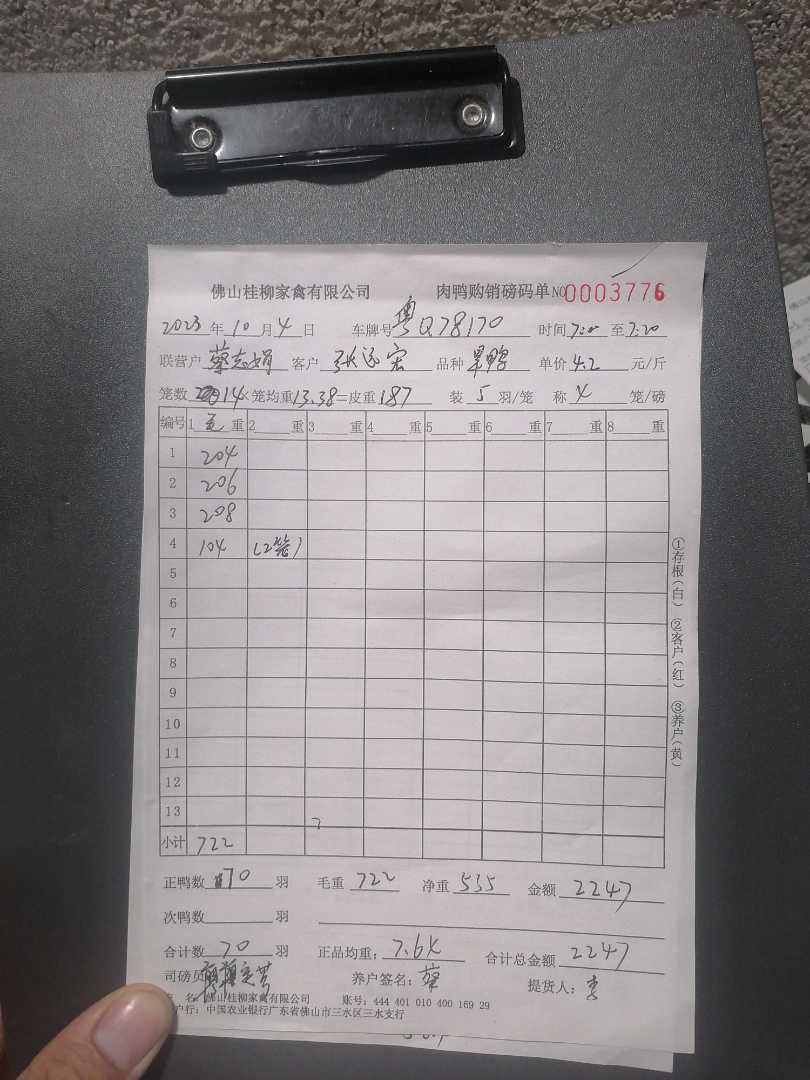 佛山桂柳家禽有限公司 肉鸭购销磅码单 NO 0003776
2023 年 10 月 4 日 车牌号 粤Q78170 时间 7:00 至 7:20
联营户 蔡志娟 客户 宏 品种 单价 4.2 元/斤
笼数 14 ×笼均重 13.38 =皮重 187 装 5 羽/笼 称 4 笼/磅
编号 1 毛 重 2 重 3 重 4 重 5 重 6 重 7 重 8 重
1 204
2 206
3 208
4 104 (2笼)
5
6
7
8
9
10
11
12
13
小计 722
正鸭数 70 羽 毛重 722 净重 535 金额 2247
次鸭数 羽
合计数 70 羽 正品均重: 7.64 合计总金额 2247
司磅员 养户签名: 蔡 提货人: 李
名 佛山桂柳家禽有限公司 账号: 444 401 010 400 169 29
户行: 中国农业银行广东省佛山市三水区三水支行
①存根(白) ②客户(红) ③养户(黄)